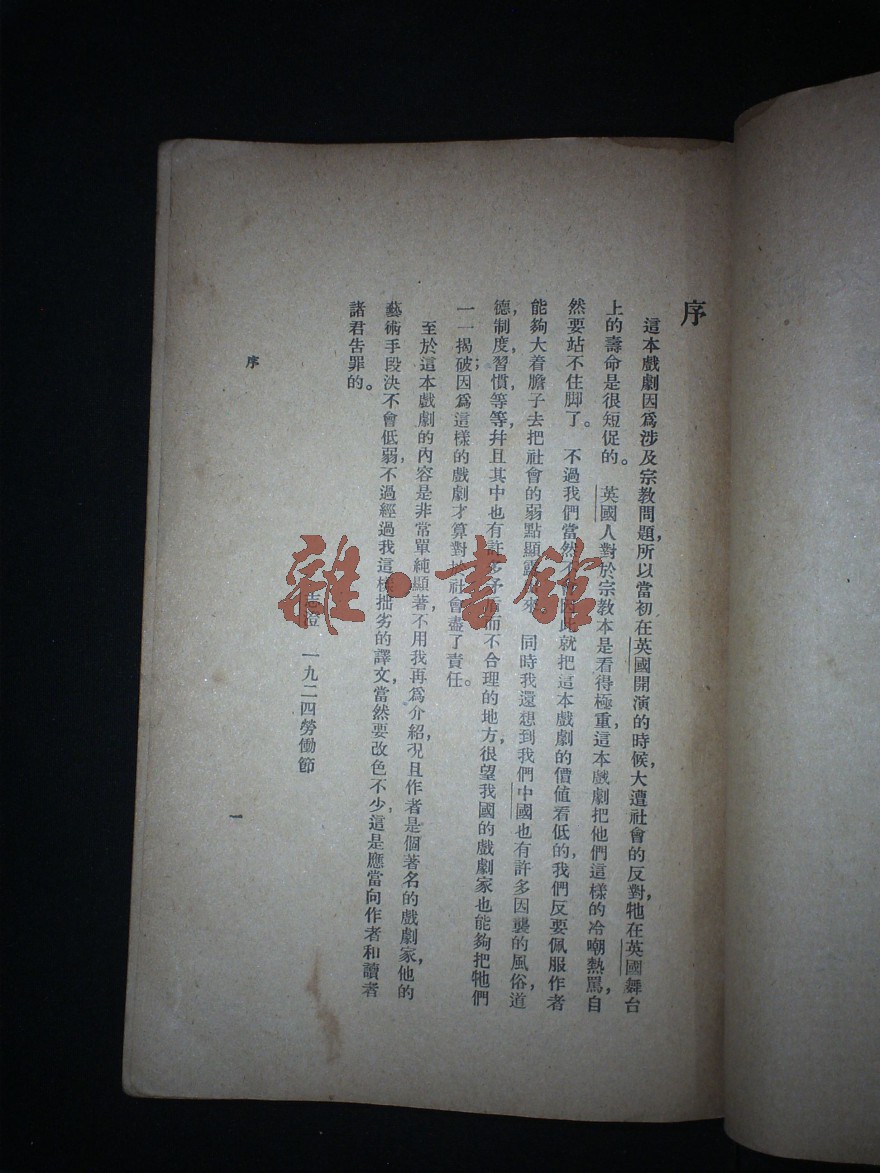 序
這本戲劇因爲涉及宗教問題，所以當初在英國開演的時候，大遭社會的反對，牠在英國舞台
上的壽命是很短促的。英國人對於宗教本是看得極重，這本戲劇把他們這樣的冷嘲熱罵，自
然要站不住脚了。不過我們當然不會因此就把這本戲劇的價值看低的，我們反要佩服作者
能夠大着膽子去把社會的弱點顯露來。同時我還想到我們中國也有許多因襲的風俗，道
德，制度，習慣，等等，幷且其中也有許多矛盾而不合理的地方，很望我國的戲劇家也能夠把牠們
一一揭破；因爲這樣的戲劇才算對於社會盡了責任。
至於這本戲劇的內容是非常單純顯著，不用我再爲介紹，况且作者是個著名的戲劇家，他的
藝術手段決不會低弱，不過經過我這樣拙劣的譯文，當然要改色不少，這是應當向作者和讀者
諸君告罪的。
志澄　一九二四勞働節
序
一
雜·書館